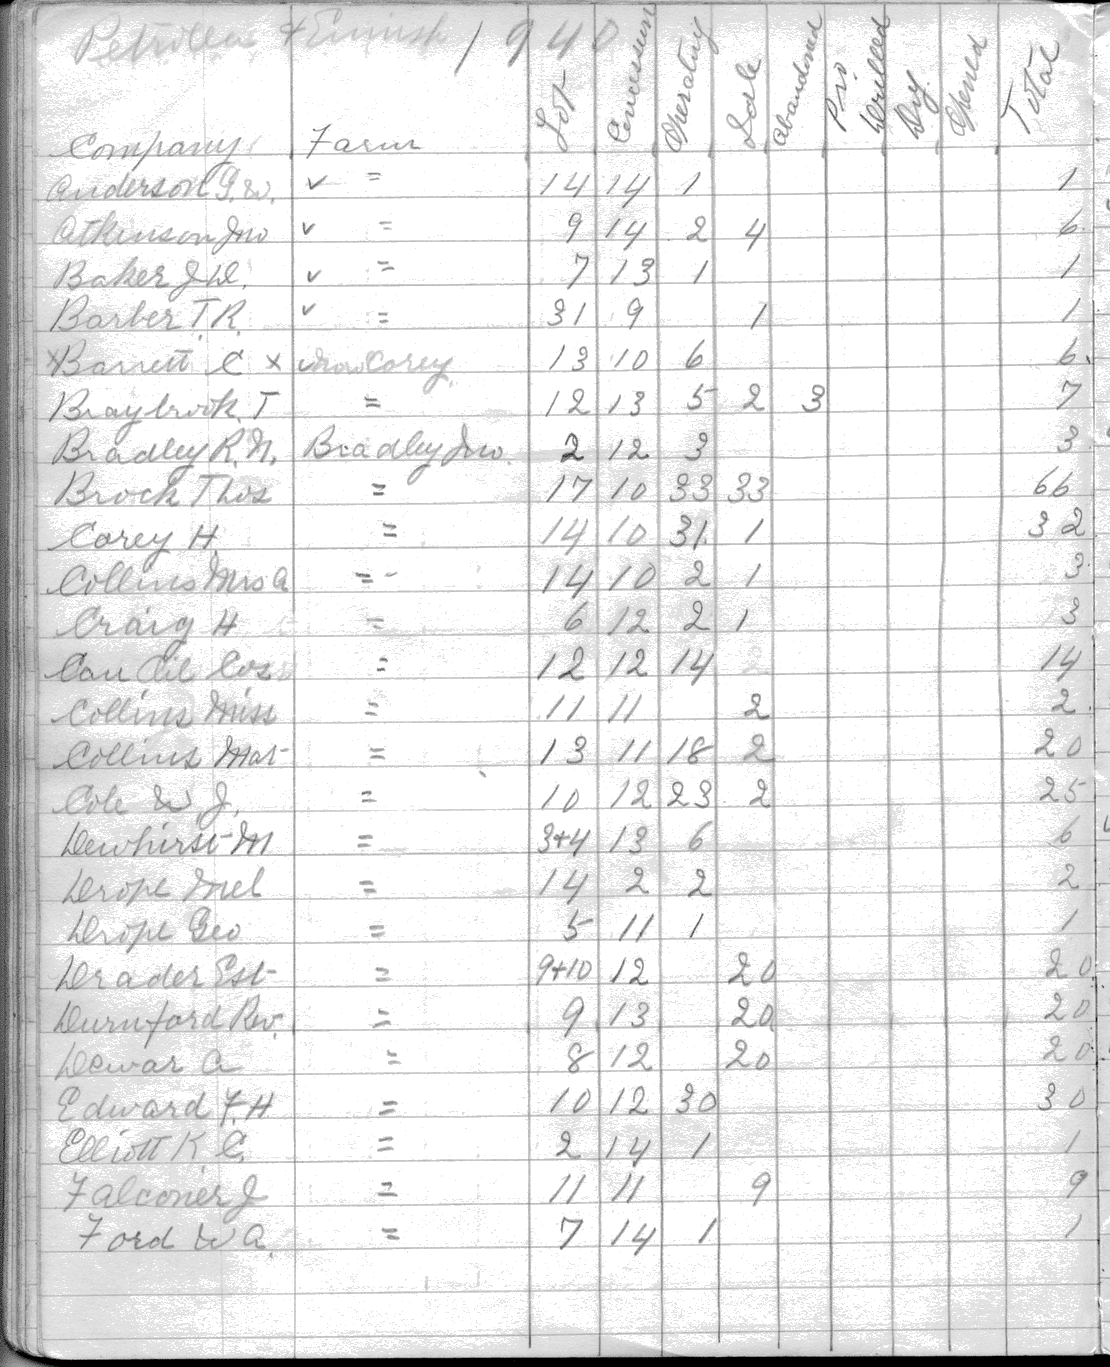 Petrolia & Ennisk 1940
Company Farm Lot Concession Operating Idle Abandoned Pro Drilled Dry Opened Total
Anderson G.W. ✓ = 14 14 1 1
Atkinson Jno ✓ = 9 14 2 4 6
Baker J.D. ✓ = 7 13 1 1
Barber T.R. ✓ = 31 9 1 1
x Barrett C x Corey 13 10 6 6
Braybrook T = 12 13 5 2 3 7
Bradley R.N. Bradley Jno. 2 12 3 3
Brock Thos = 17 10 33 33 66
Corey H. = 14 10 31 1 32
Collins Mrs A = 14 10 2 1 3
Craig H = 6 12 2 1 3
Can Oil Cos = 12 12 14 14
Collins Miss = 11 11 2 2
Collins Mat = 13 11 18 2 20
Cole W J. = 10 12 23 2 25
Dewhirst M = 3+4 13 6 6
Drope Mel = 14 2 2 2
Drope Geo = 5 11 1 1
Drader Est = 9+10 12 20 20
Durnford Rev. = 9 13 20 20
Dewar A = 8 12 20 20
Edward F.H = 10 12 30 30
Elliott K C. = 2 14 1 1
Falconer J = 11 11 9 9
Ford W A. = 7 14 1 1